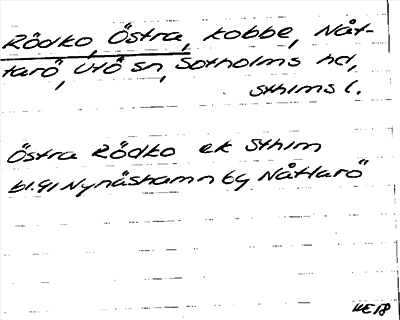 Rödko, Östra, kobbe, Nåt-
tarö, Utö sn, Sotholms hd,
sthlms l.
Östra Rödko ek Sthlm
bl.91 Nynäshamn by Nåttarö